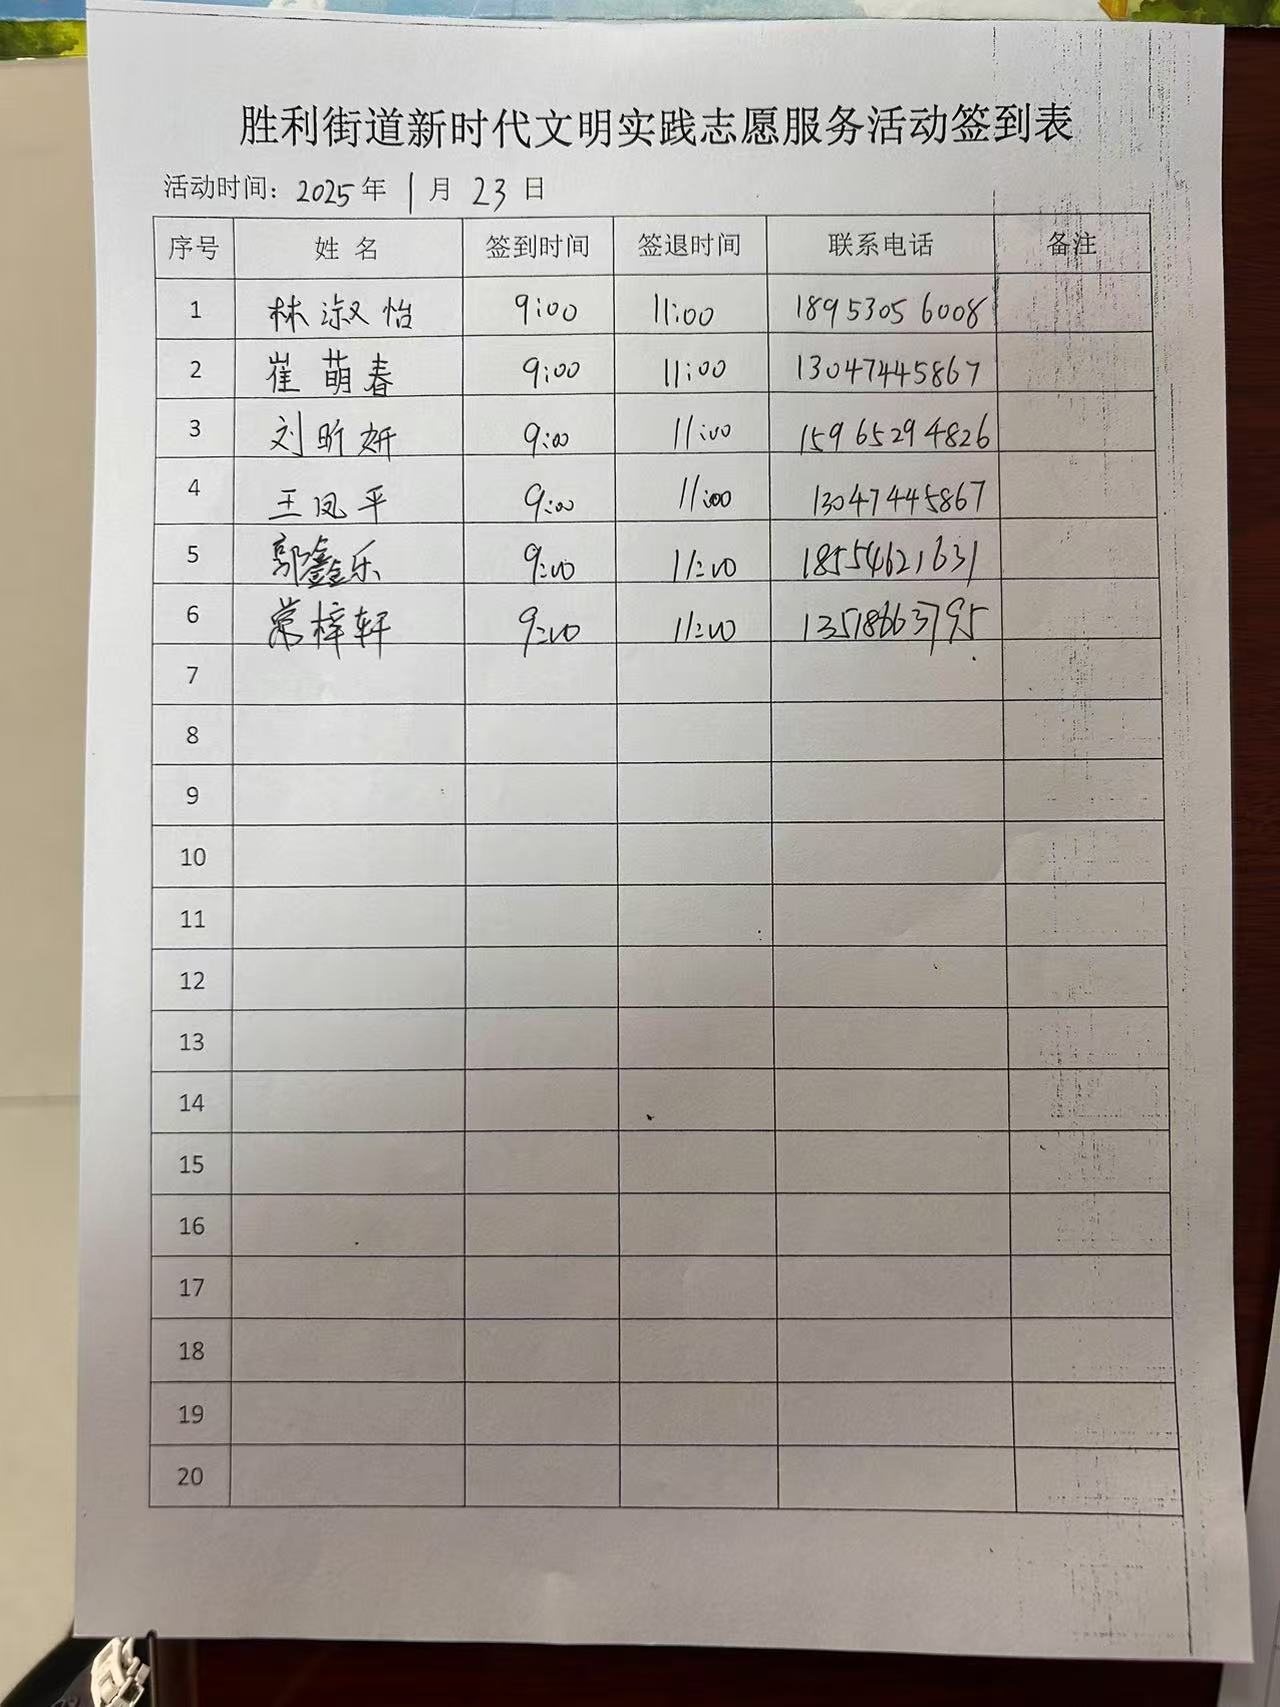 胜利街道新时代文明实践志愿服务活动签到表
活动时间：2025年 1月 23日
序号 姓名 签到时间 签退时间 联系电话 备注
1 林淑怡 9:00 11:00 18953056008
2 崔萌春 9:00 11:00 13047445867
3 刘昕妍 9:00 11:00 15965294826
4 王凤平 9:00 11:00 13047445867
5 郭鑫乐 9:00 11:00 18554621631
6 常梓轩 9:00 11:00 13518663795
7
8
9
10
11
12
13
14
15
16
17
18
19
20